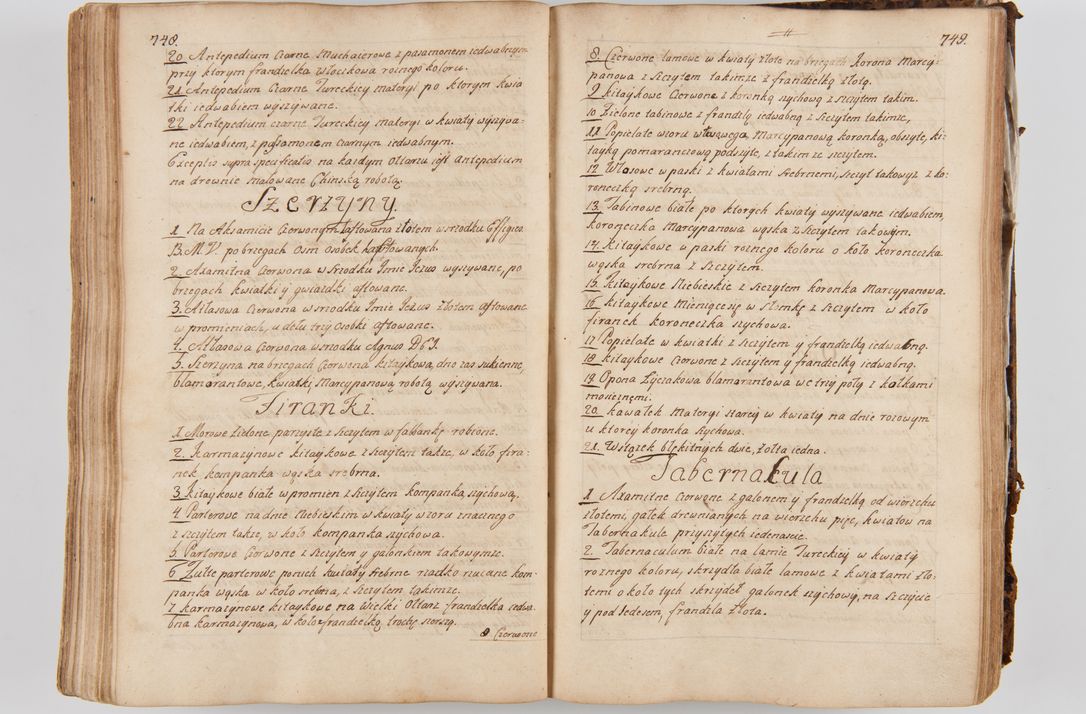 748.
20 Antepedium Czarne Muchaierowe z pasamonem iedwabnym
przy ktorym frandzelka włoczkowa roznego koloru.
21 Antepedium Czarne Tureckiey materyi po ktorym kwia
tki iedwabiem wyszywane.
22 Antepedium czarne Tureckiey materyi w kwiaty wyszywa-
ne iedwabiem, z pasamonem czarnym iedwabnym.
Exceptis supra specificatis na kazdym Ołtarzu iest Antepedium
na drewnie malowane Chinską robotą.
Szerzyny.
1 Na Axamicie Czerwonym aftowana złotem w srzodku Effigies
B. M. V. po brzegach osm osobek haftowanych.
2. Axamitna Czerwona w srzodku Imie Jezus wyszywane, po
brzegach kwiatki y gwiazdki aftowane.
3. Atłasowa Czerwona w srzodku Imie Jezus złotem aftowane
w promieniach, u dołu trzy osobki aftowane.
4. Atłasowa Czerwona w srzodku Agnus DEI.
5. Szerzyna na brzegach Czerwona kitaykowa, dno zas sukienne,
blamarantowe, kwiatki Marcypanową robotą wyszywana.
Firanki.
1 Morowe zielone parzyste z szczytem w falbankę robione.
2. Karmazynowe kitaykowe z szczytem takze, w koło fira-
nek kompanka wąska srebrna.
3 kitaykowe białe w promien z szczytem kompanka szychową.
4 Parterowe na dnie Niebieskim w kwiaty wzoru znacznego
z szczytem takze, w koło kompanka szychowa.
5 Parterowe Czerwone z szczytem y galonkiem takowymze.
6 Zułte parterowe ponich kwiaty srebrne rzadko rzucane kom-
panka wąska w koło srebrna, z szczytem takimze.
7 karmazynowe kitaykowe na Wielki Ołtarz frandzelka iedwa-
bna karmazynowa, w koło frandzelką trochę szerszą.
8 Czerwone
749.
8. Czerwone lamowe w kwiaty złote na brzegach korona Marcy-
panowa z szczytem takimze z frandzelką złotą.
9 kitaykowe Czerwone z koronką szychową z szczytem takim.
10 Zielone tabinowe z frandzlą iedwabną z szczytem takimze,
11 Popielate wzoru Marcypanową koronką, obszyte, ki-
tayką pomaranczową podszyte, z takimze szczytem.
12 Włosowe w paski z kwiatami srebrnemi, szczyt takowyz z ko-
roneczką srebrną.
13. Tabinowe białe po ktorych kwiaty wyszywane iedwabiem,
koroneczka Marcypanowa wąska z szczytem takowym.
14. kitaykowe w paski roznego koloru o koło koroneczka
wąska srebrna z szczytem.
15 kitaykowe Niebieskie z szczytem koronka Marcypanowa.
16 kitaykowe Mieniącezię w słomkę z szczytem w koło
firanek koroneczka szychowa.
17 Popielate w kwiatki z szczytem y frandzelką iedwabną.
18 kitaykowe Czerwone z szczytem y frandzelką iedwabną.
19 Opona Łyczakowa blamarantowa we trzy poły z kołkami
mosieznemi.
20. kawałek Materyi starey w kwiaty na dnie rozowym
u ktorey koronka szychowa.
21. Wstązek błękitnych dwie, żołta iedna.
Tabernakula
1 Axamitne Czerwone z galonem y frandzelką od wierzchu
złotemi, gałek drewnianych na wierzchu pięc, kwiatow na
Tabernakule przyszytych iedenascie.
2. Tabernaculum białe na lamie Tureckiey w kwiaty
roznego koloru, skrzydła białe lamowe z kwiatami zło-
temi o koło tych skrzydeł galonek szychowy, na szczycie
y pod sedesem, frandzla złota.